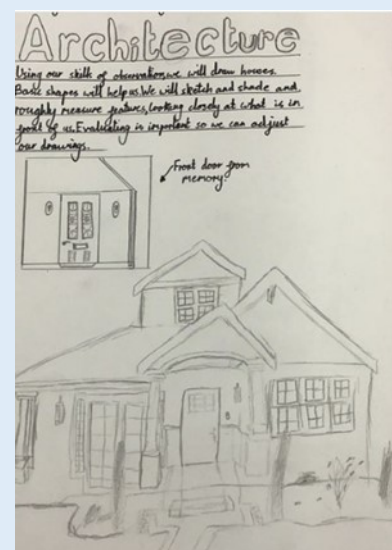 Architecture
Using our skills of observation, we will draw houses.
Basic shapes will help us. We will sketch and shade and
roughly measure features, looking closely at what is in
front of us. Evaluating is important so we can adjust
our drawings.
Front door from
memory.